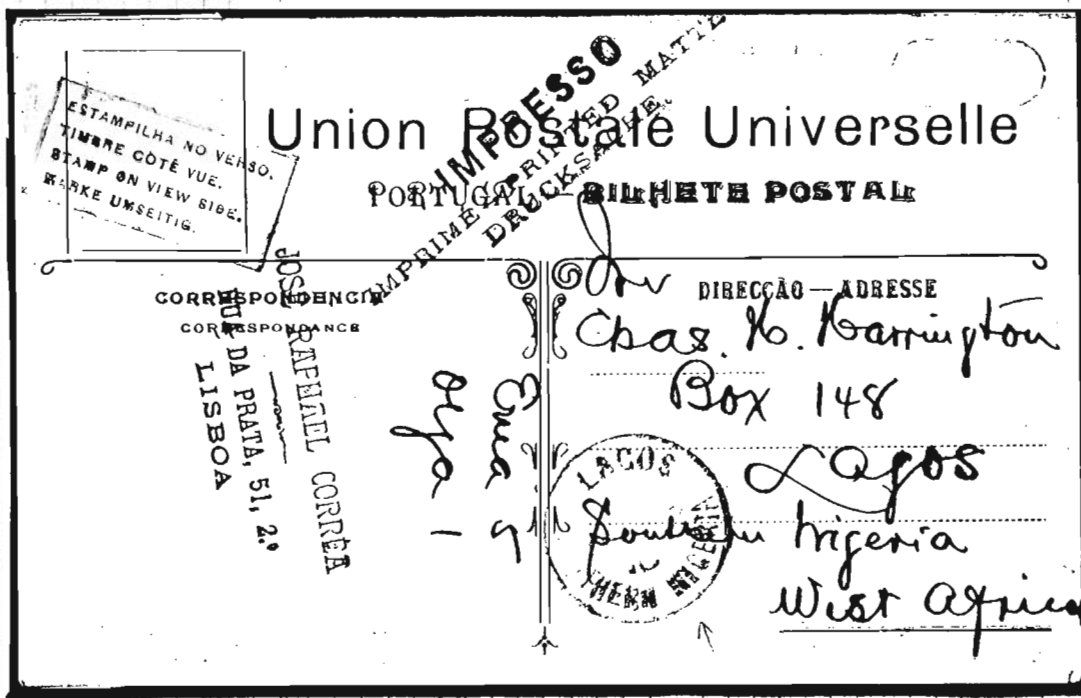 ESTAMPILHA NO VERSO.
TIMBRE CÔTÉ VUE.
STAMP ON VIEW SIDE.
MARKE UMSEITIG.
IMPRESSO
IMPRIMÉ — PRINTED MATTE
DRUCKSACHE.
Union Postale Universelle
PORTUGAL — BILHETE POSTAL
CORRESPONDENCIA
CORRESPONDANCE
JOSÉ RAPHAEL CORRÊA
RUA DA PRATA, 51, 2.º
LISBOA
5
1
DIRECÇÃO — ADRESSE
Chas. H. Harrington
Box 148
Lagos
Southern Nigeria
West Africa
LAGOS
THERN NIGERIA